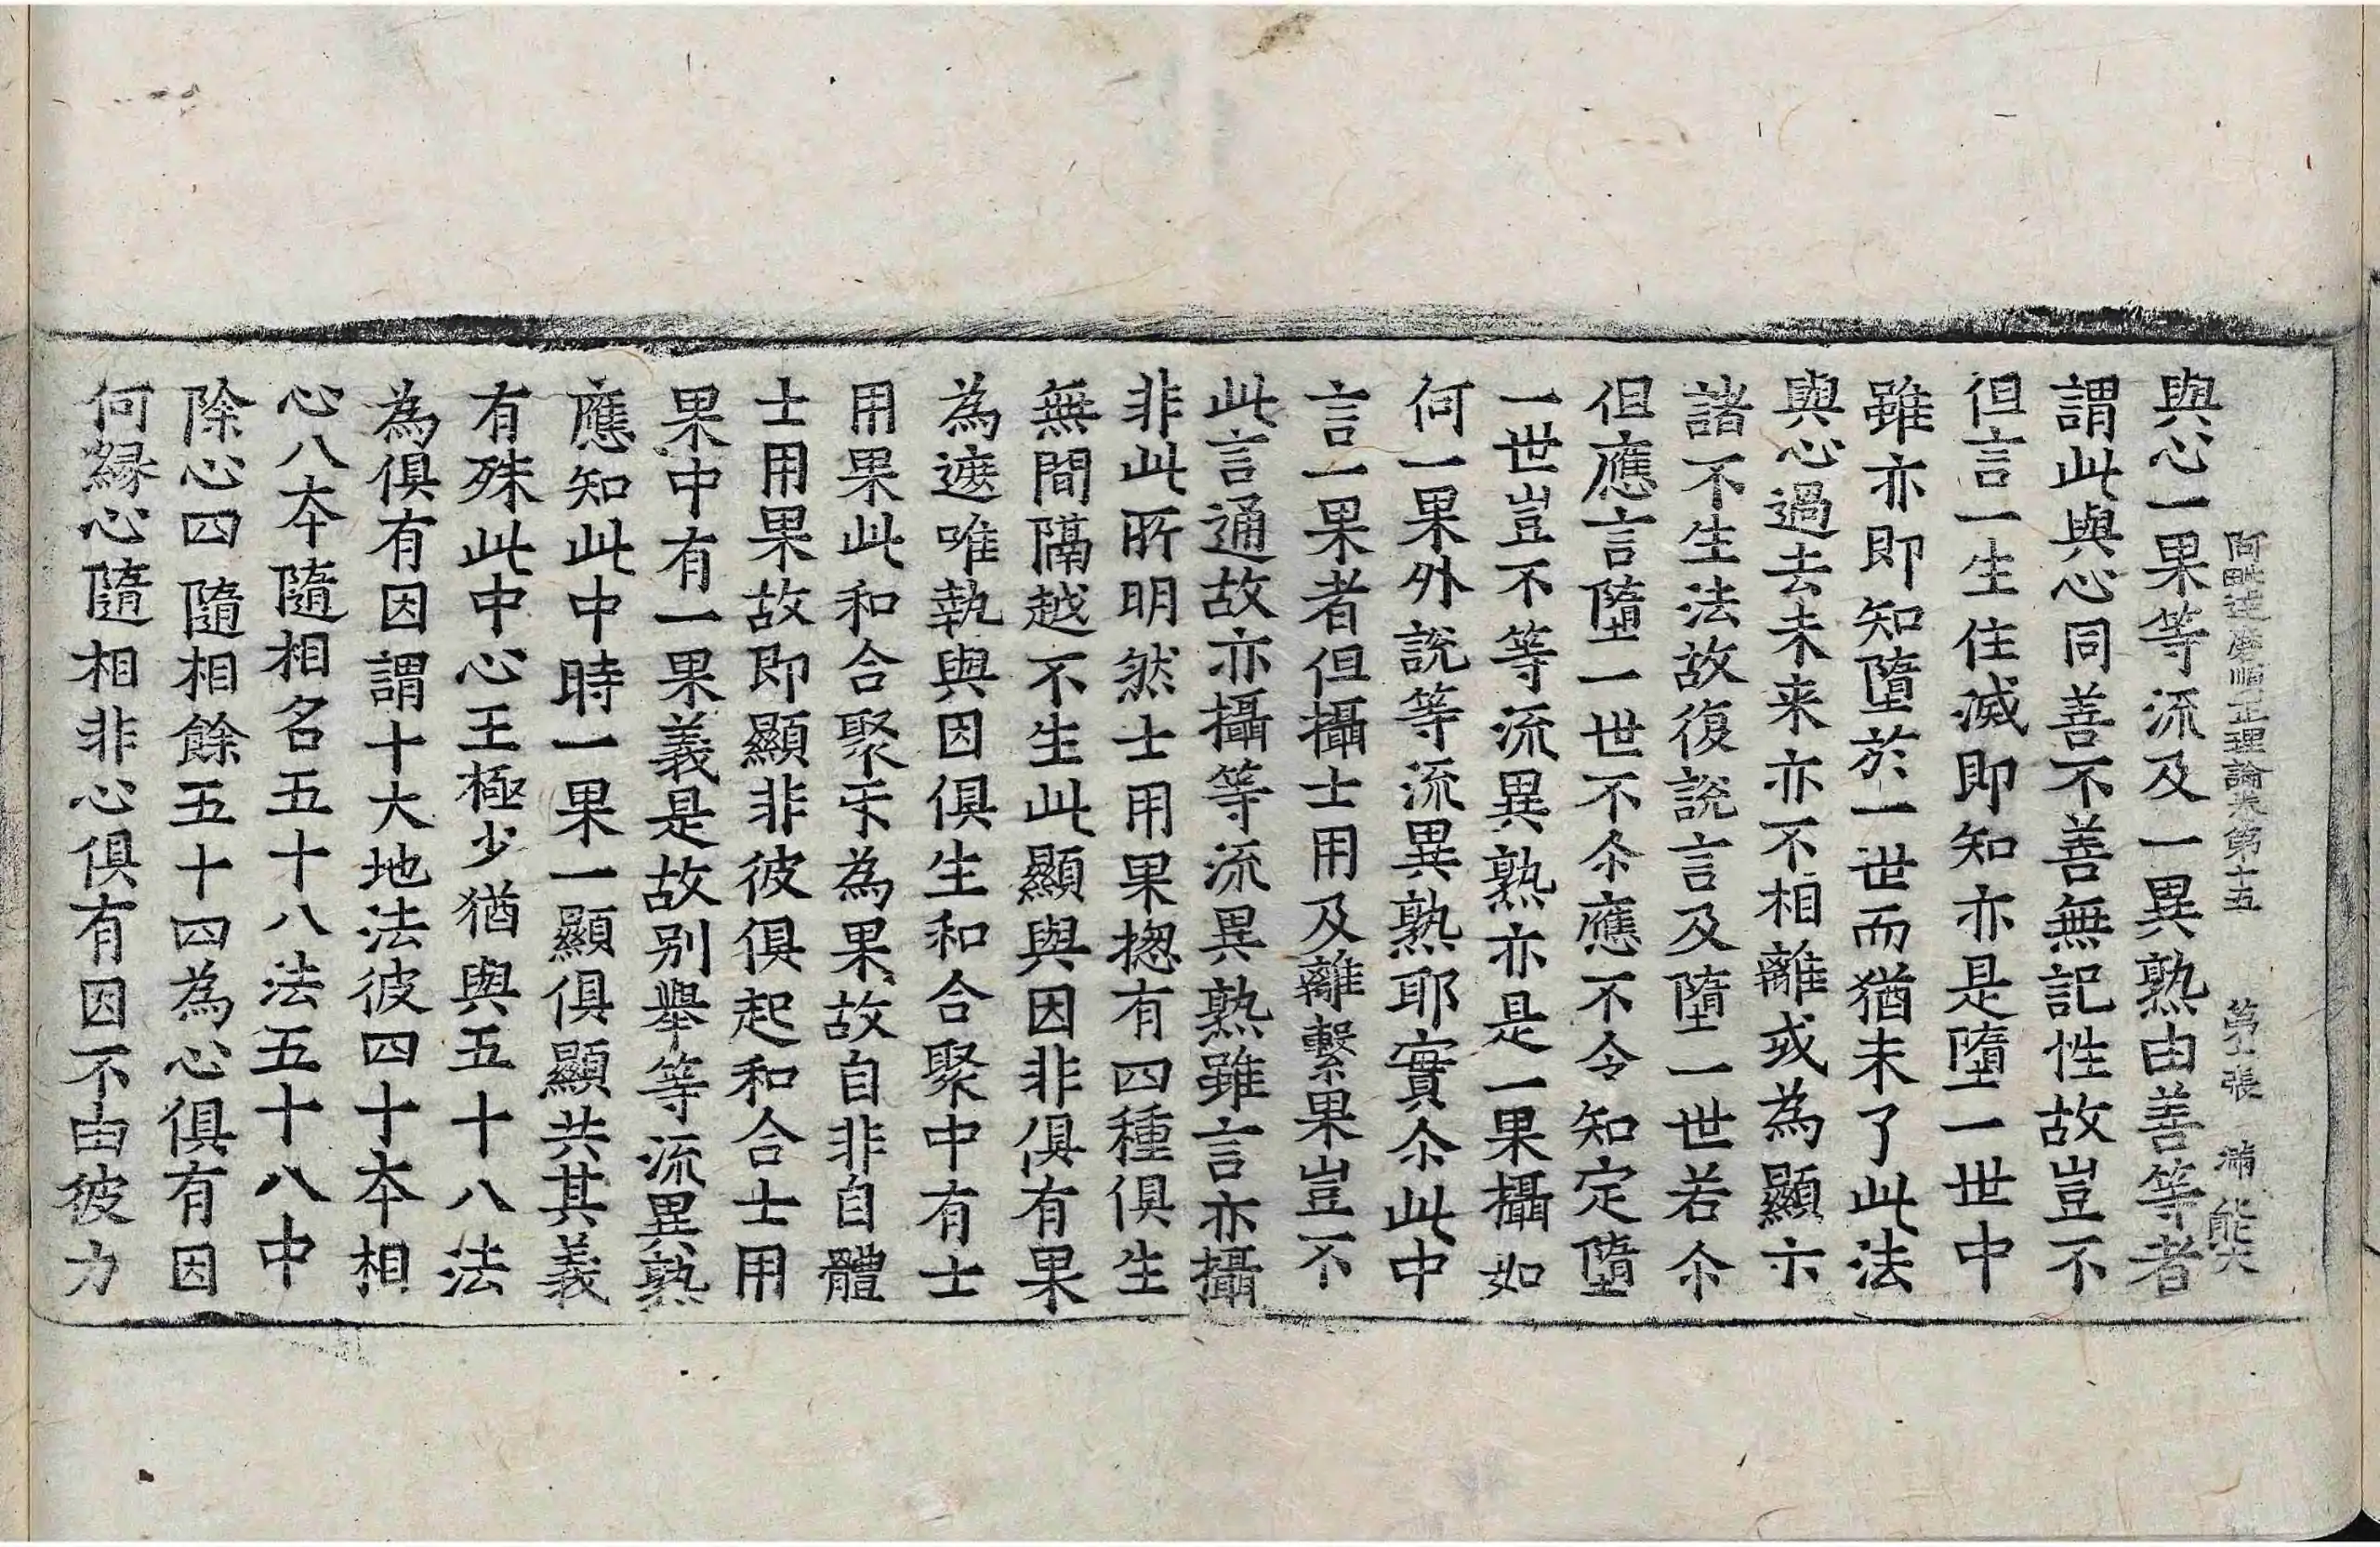 阿毗達磨順正理論卷第十五 第二張 滿 能六
與心一果等流及一異熟由善等者
謂此與心同善不善無記性故豈不
但言一生住滅即知亦是墮一世中
雖亦即知墮於一世而猶未了此法
與心過去未来亦不相離或為顯示
諸不生法故復說言及墮一世若尒
但應言墮一世不尒應不令知定墮
一世豈不等流異熟亦是一果攝如
何一果外說等流異熟耶實尒此中
言一果者但攝士用及離繫果豈不
此言通故亦攝等流異熟雖言亦攝
非此所明然士用果摠有四種俱生
無間隔越不生此顯與因非俱有果
為遮唯執與因俱生和合聚中有士
用果此和合聚互為果故自非自體
士用果故即顯非彼俱起和合士用
果中有一果義是故別舉等流異熟
應知此中時一果一顯俱顯共其義
有殊此中心王極少猶與五十八法
為俱有因謂十大地法彼四十本相
心八本隨相名五十八法五十八中
除心四隨相餘五十四為心俱有因
何緣心隨相非心俱有因不由彼力